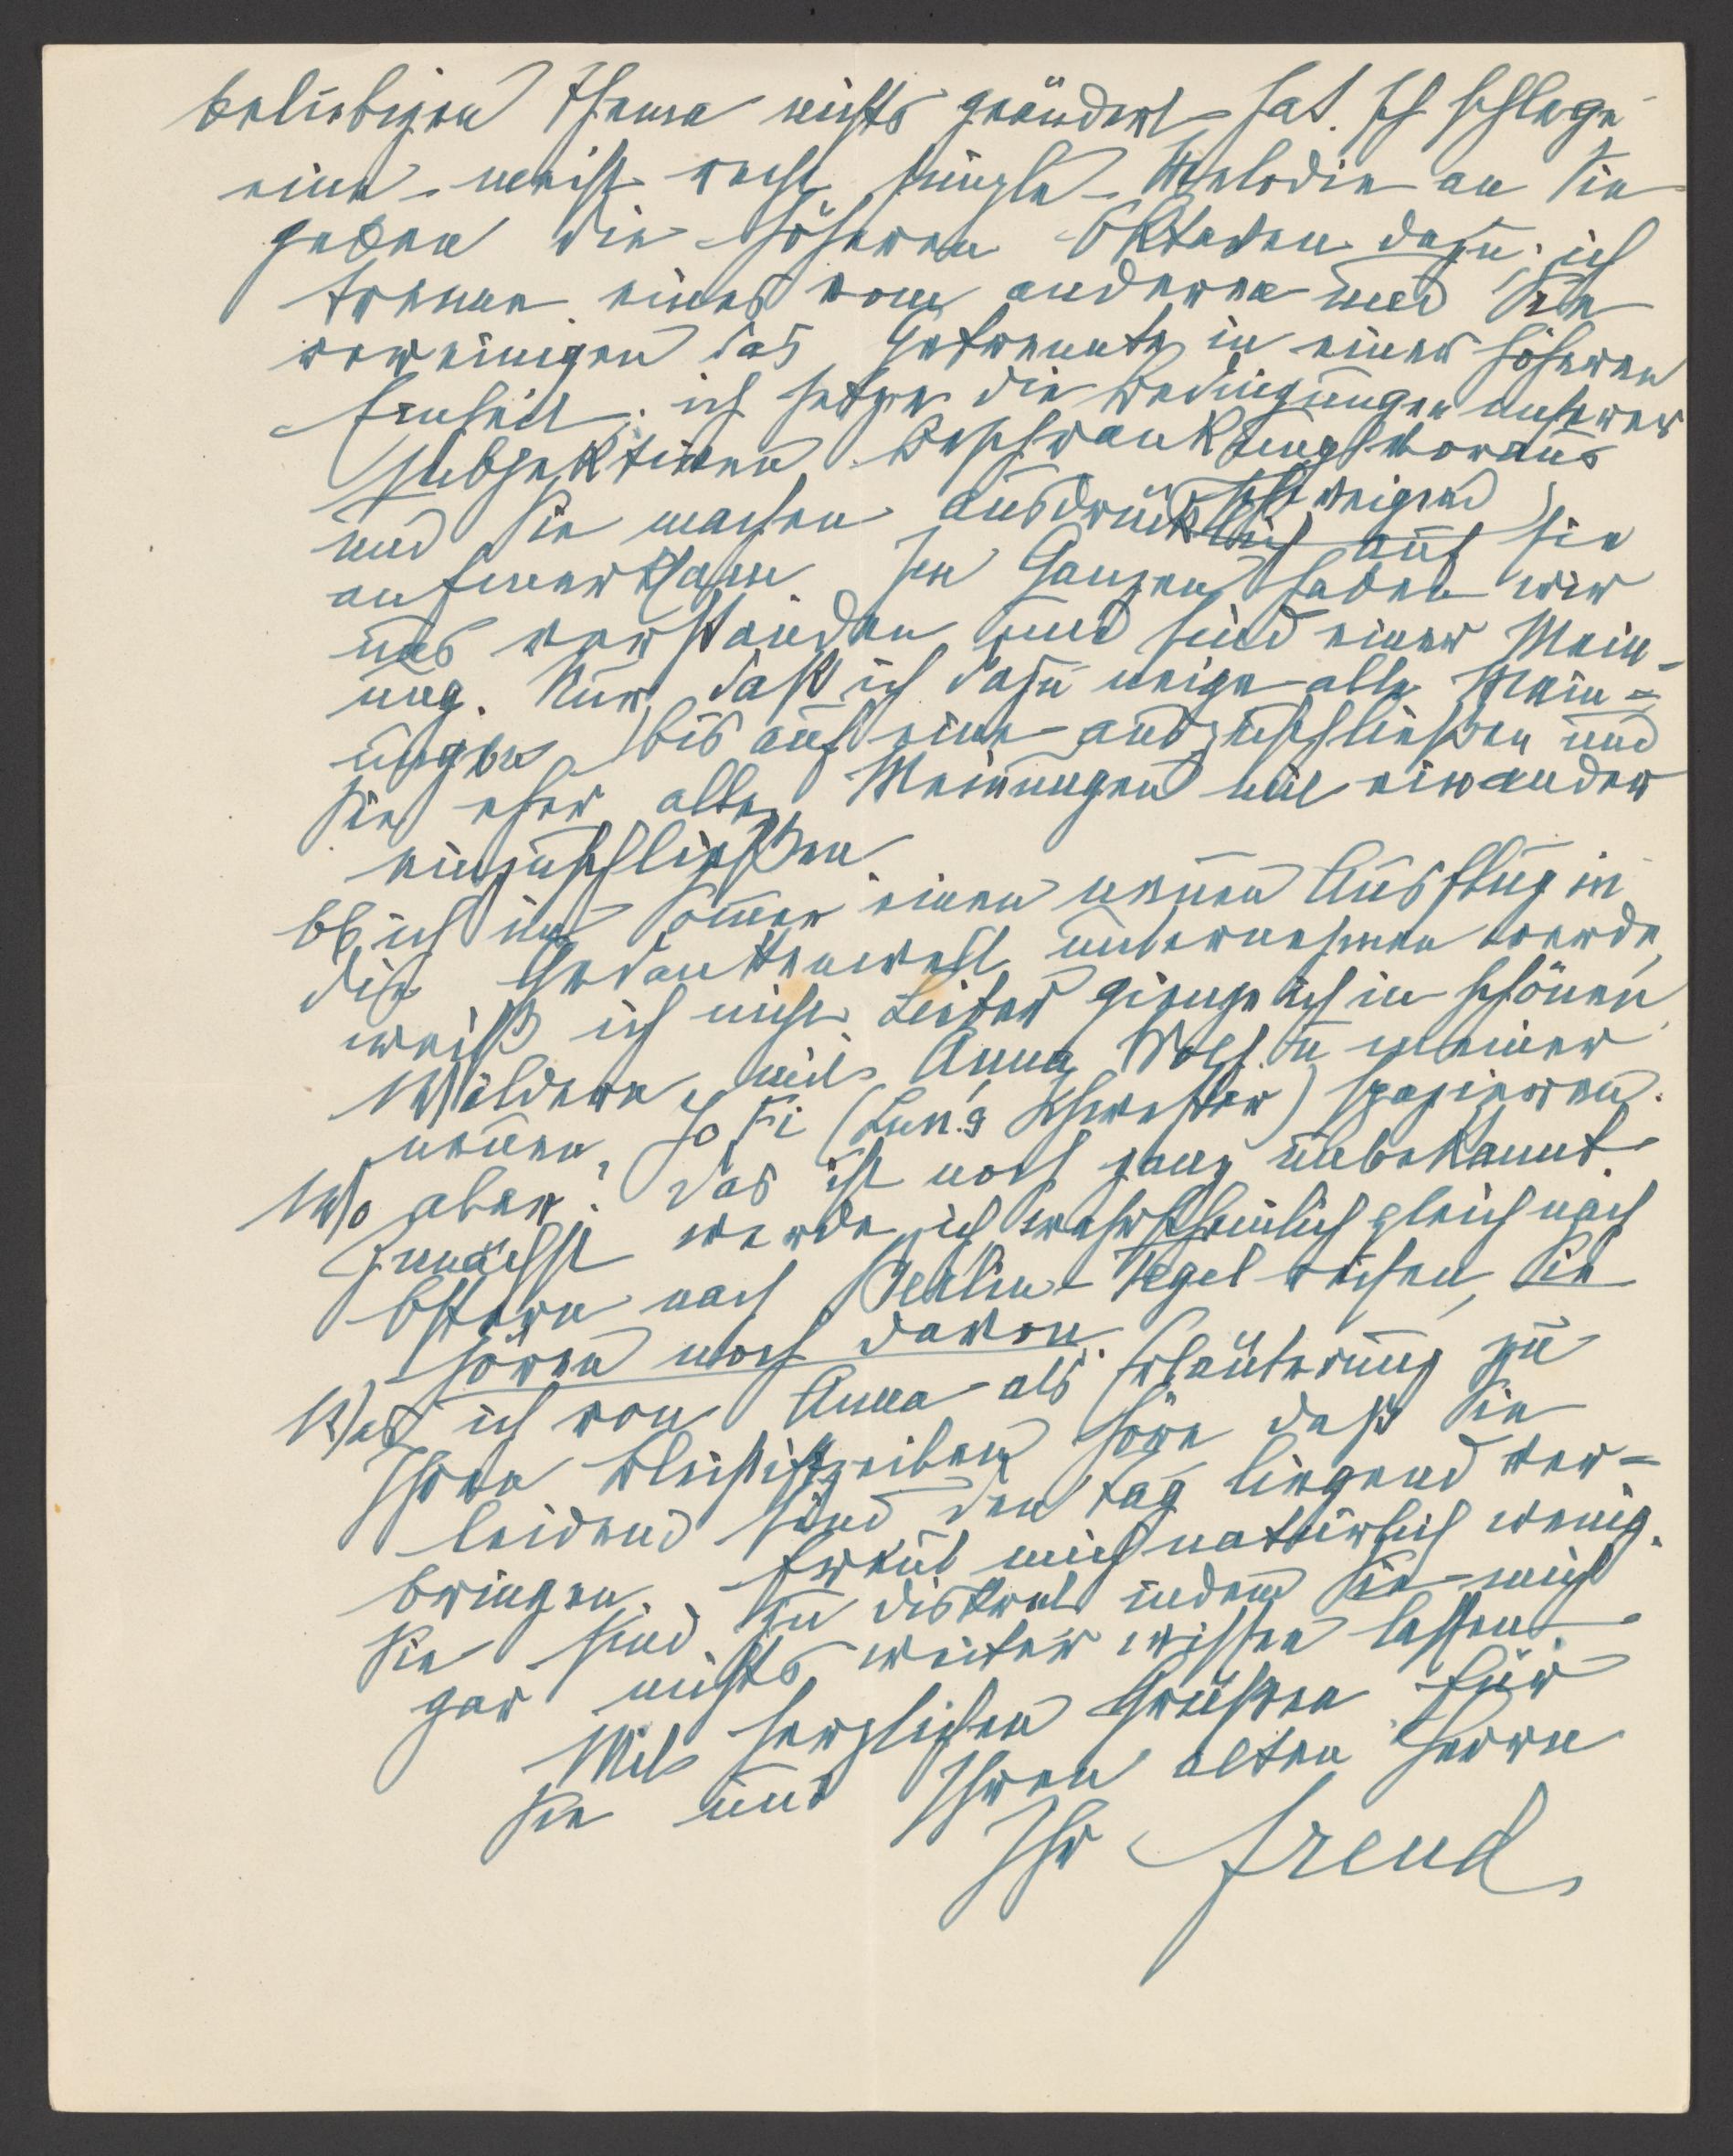 beliebigen Thema nichts geändert hat. Ich schlage
eine – meist recht simple – Melodie an Sie
geben die höheren Oktaven dazu; ich
trenne eines vom anderen und Sie
vereinigen das Getrennte in einer höheren
Einheit; ich setze die Bedingungen unserer
subjektiven Beschränktung voraus
schweigend
und Sie machen ausdrücklich auf sie
aufmerksam. Im Ganzen haben wir
uns verstanden und sind einer Mein-
ung. Nur, daß ich dazu neige alle Mein-
ungen bis auf eine auszuschließen und
Sie eher alle Meinungen mit einander
einzuschließen
Ob ich im Somer einen neuen Ausflug in
die Gedankenwelt unternehmen werde,
weiß ich nicht. Lieber gienge ich in schönen
Wäldern mit Anna, Wolf u meiner
neuen Jo Fi (Lun's Schwester) spazieren.
Wo aber? Das ist noch ganz unbekannt.
Zunächst werde ich wahrscheinlich gleich nach
Ostern nach Berlin-Tegel reisen, Sie
hören noch davon.
Was ich von Anna als Erläuterung zu
Ihren Bleistiftzeilen höre daß Sie
leidend sind den Tag liegend ver-
bringen. Erfreut mich natürlich wenig.
Sie sind zu diskret indem Sie mich
gar nichts weiter wissen lassen.
Mit herzlichen Grüßen für
Sie und Ihren alten Herrn
Ihr Freud